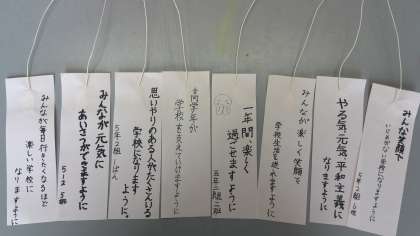 みんな笑顔で
いじめがない学校になりますように
5年2組6班
やる気、元気、平和主義に
なりますように
みんなが楽しく笑顔で
学校生活を送れますように
一年間楽しく
過ごせますように
五年二組二班
全同学年が
学校を支えていけますように
思いやりのある人がたくさんいる
学校になります
ように。
5年2組1ぱん
みんなが元気に
あいさつができますように
5-2 5班
みんなが毎日行きたくなるほど
楽しい学校に
なりますように